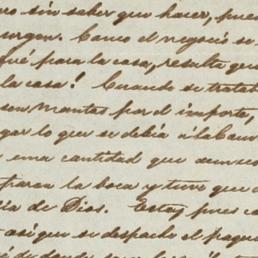 sin saber que hacer, pues
urgen. Como el negocio se
fué para la casa, resulta que
la casa! Cuando se tratab
son mantas por el importe,
gar lo que se debia á la Caur
una cantidad que aunca
para la boca y tuve que
ia de Dios. Estoy pues co
así que se despache el paque